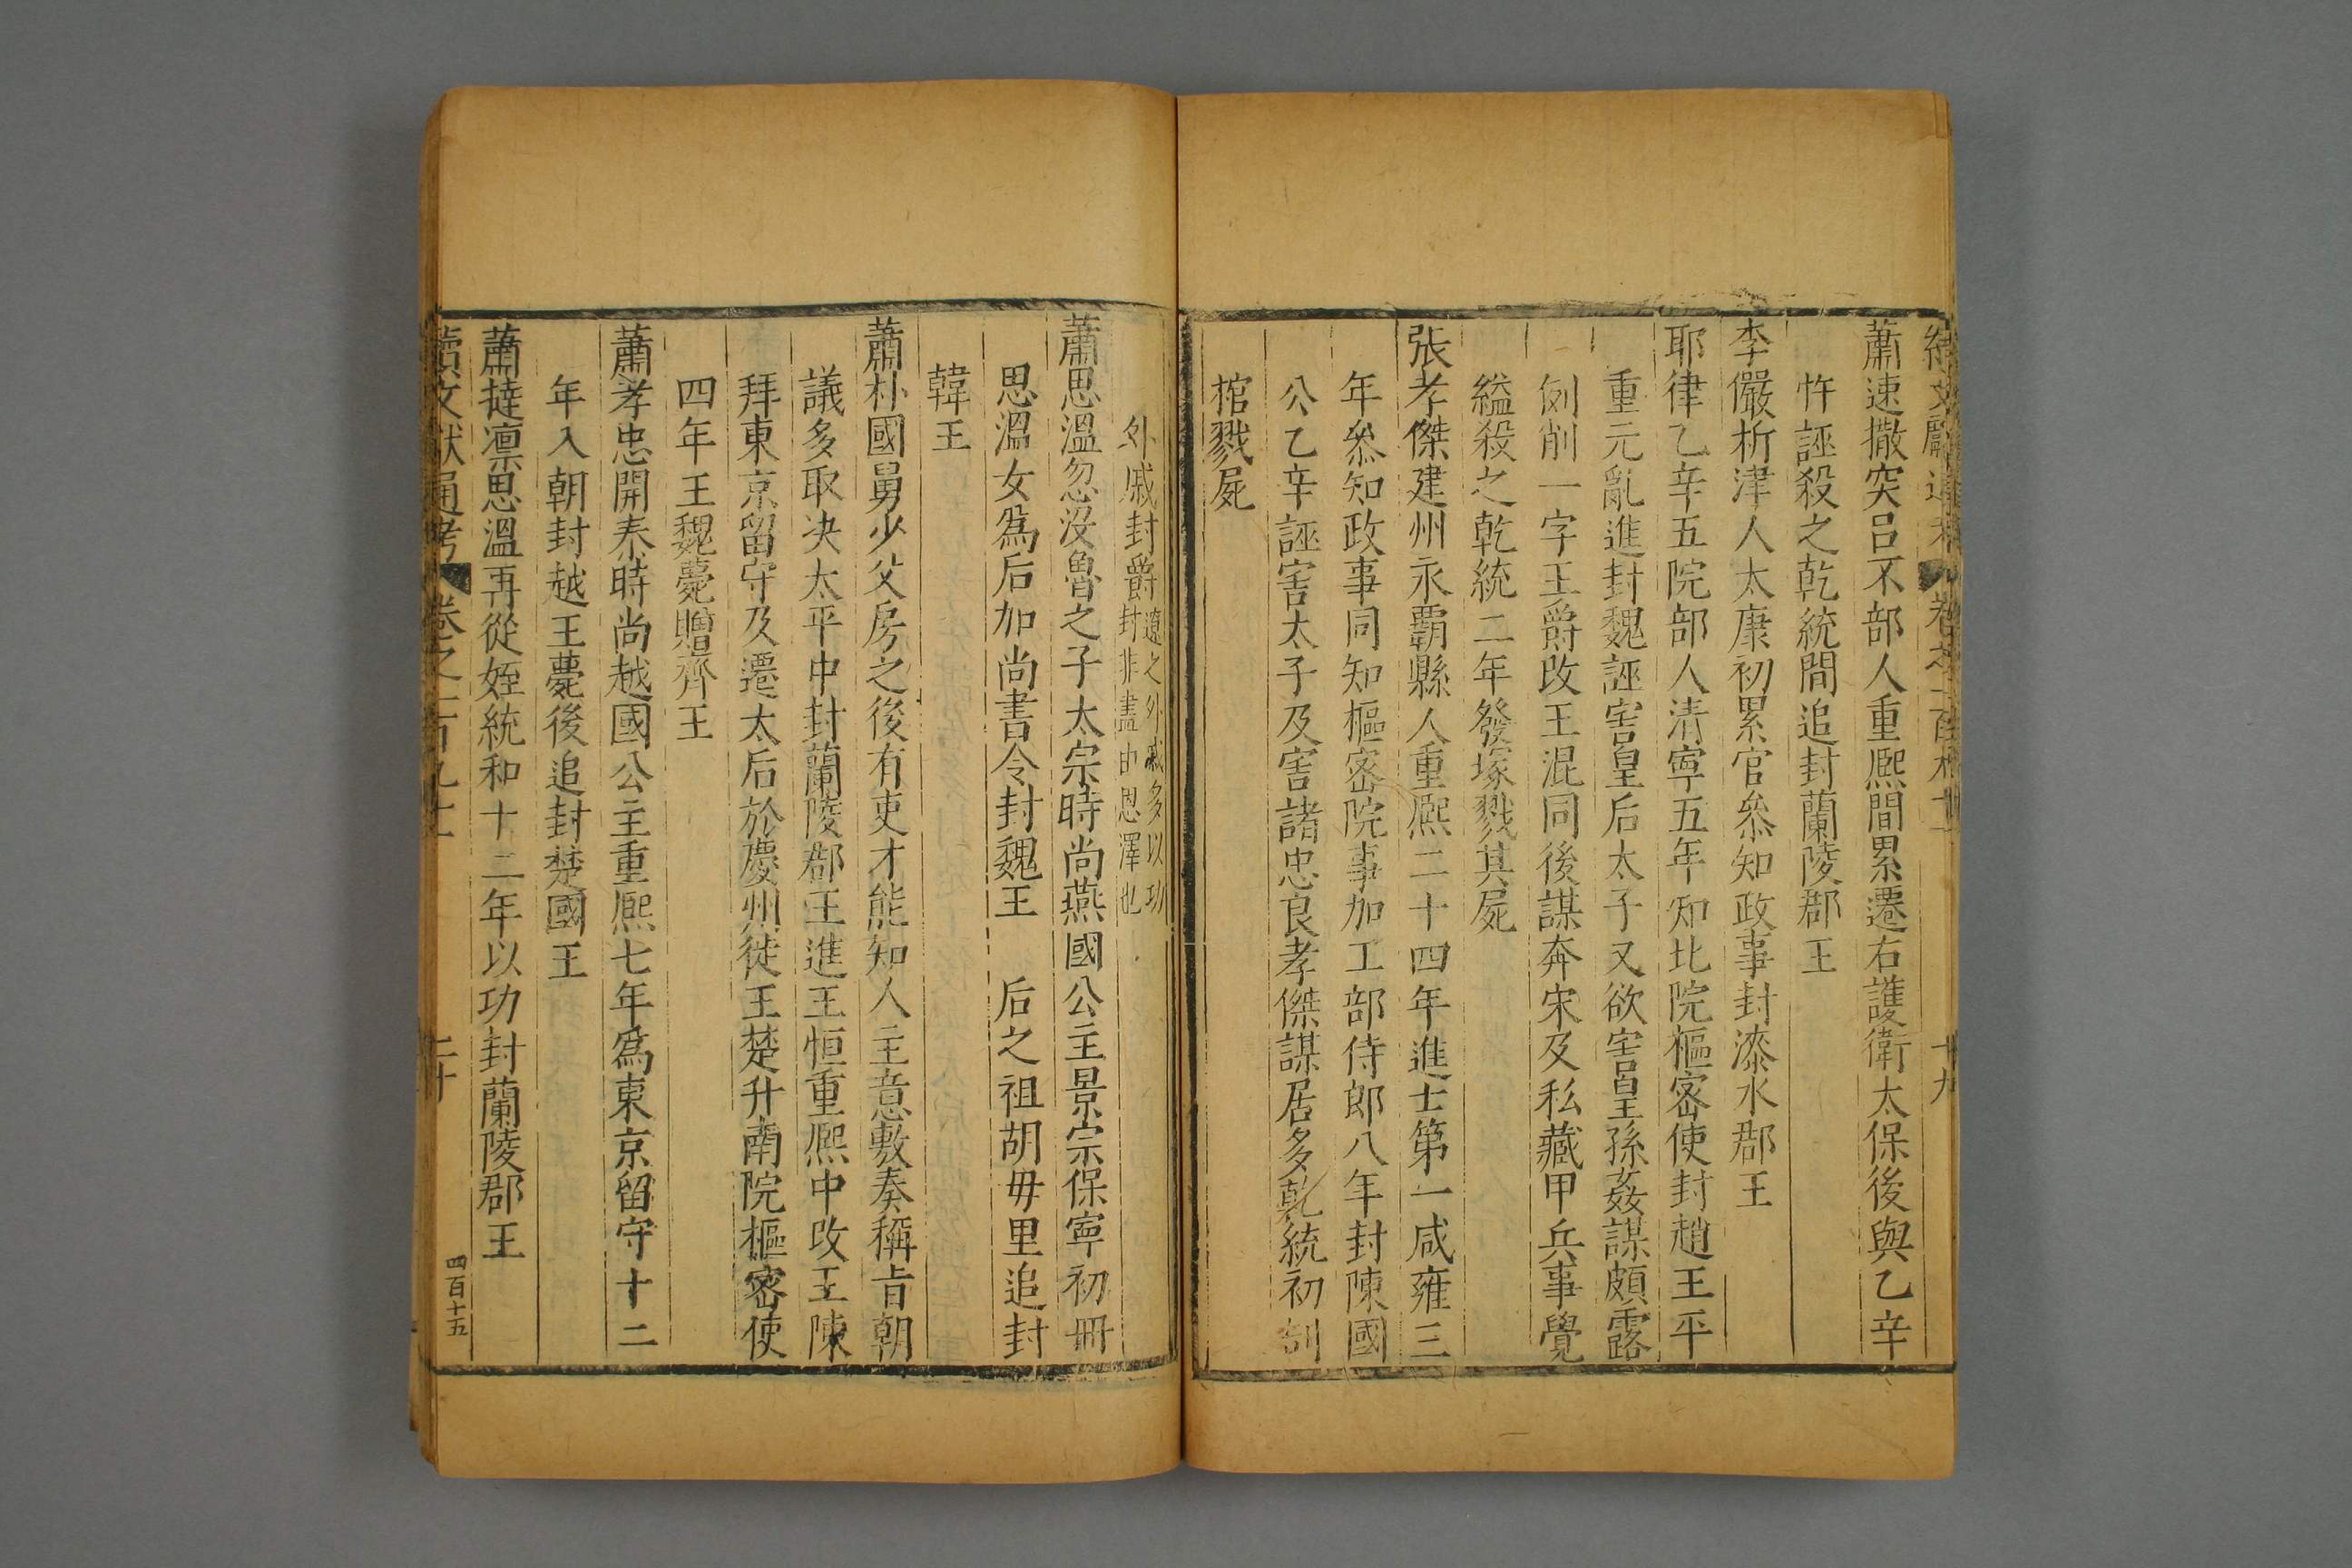 續文獻通考 卷之一百九十 十九
蕭速撒突呂不部人重熙間累遷右護衛太保後與乙辛
忤誣殺之乾統間追封蘭陵郡王
李儼析津人太康初累官叅知政事封漆水郡王
耶律乙辛五院部人清寧五年知北院樞密使封趙王平
重元亂進封魏誣害皇后太子又欲害皇孫姦謀頗露
例削一字王爵改王混同後謀奔宋及私藏甲兵事覺
縊殺之乾統二年發塚戮其屍
張孝傑建州永覇縣人重熙二十四年進士第一咸雍三
年叅知政事同知樞密院事加工部侍郎八年封陳國
公乙辛誣害太子及害諸忠良孝傑謀居多乾統初剖
棺戮屍
外戚封爵遼之外戚多以功封非盡由恩澤也
蕭思溫忽沒魯之子太宗時尚燕國公主景宗保寧初冊
思溫女爲后加尚書令封魏王 后之祖胡毋里追封
韓王
蕭朴國舅少父房之後有吏才能知人主意敷奏稱旨朝
議多取决太平中封蘭陵郡王進王恒重熙中改王陳
拜東京留守及遷太后於慶州徙王楚升南院樞密使
四年王魏薨贈齊王
蕭孝忠開泰時尚越國公主重熙七年爲東京留守十二
年入朝封越王薨後追封楚國王
蕭撻凛思溫再從姪統和十二年以功封蘭陵郡王
續文獻通考 卷之一百九十 二十 四百十五